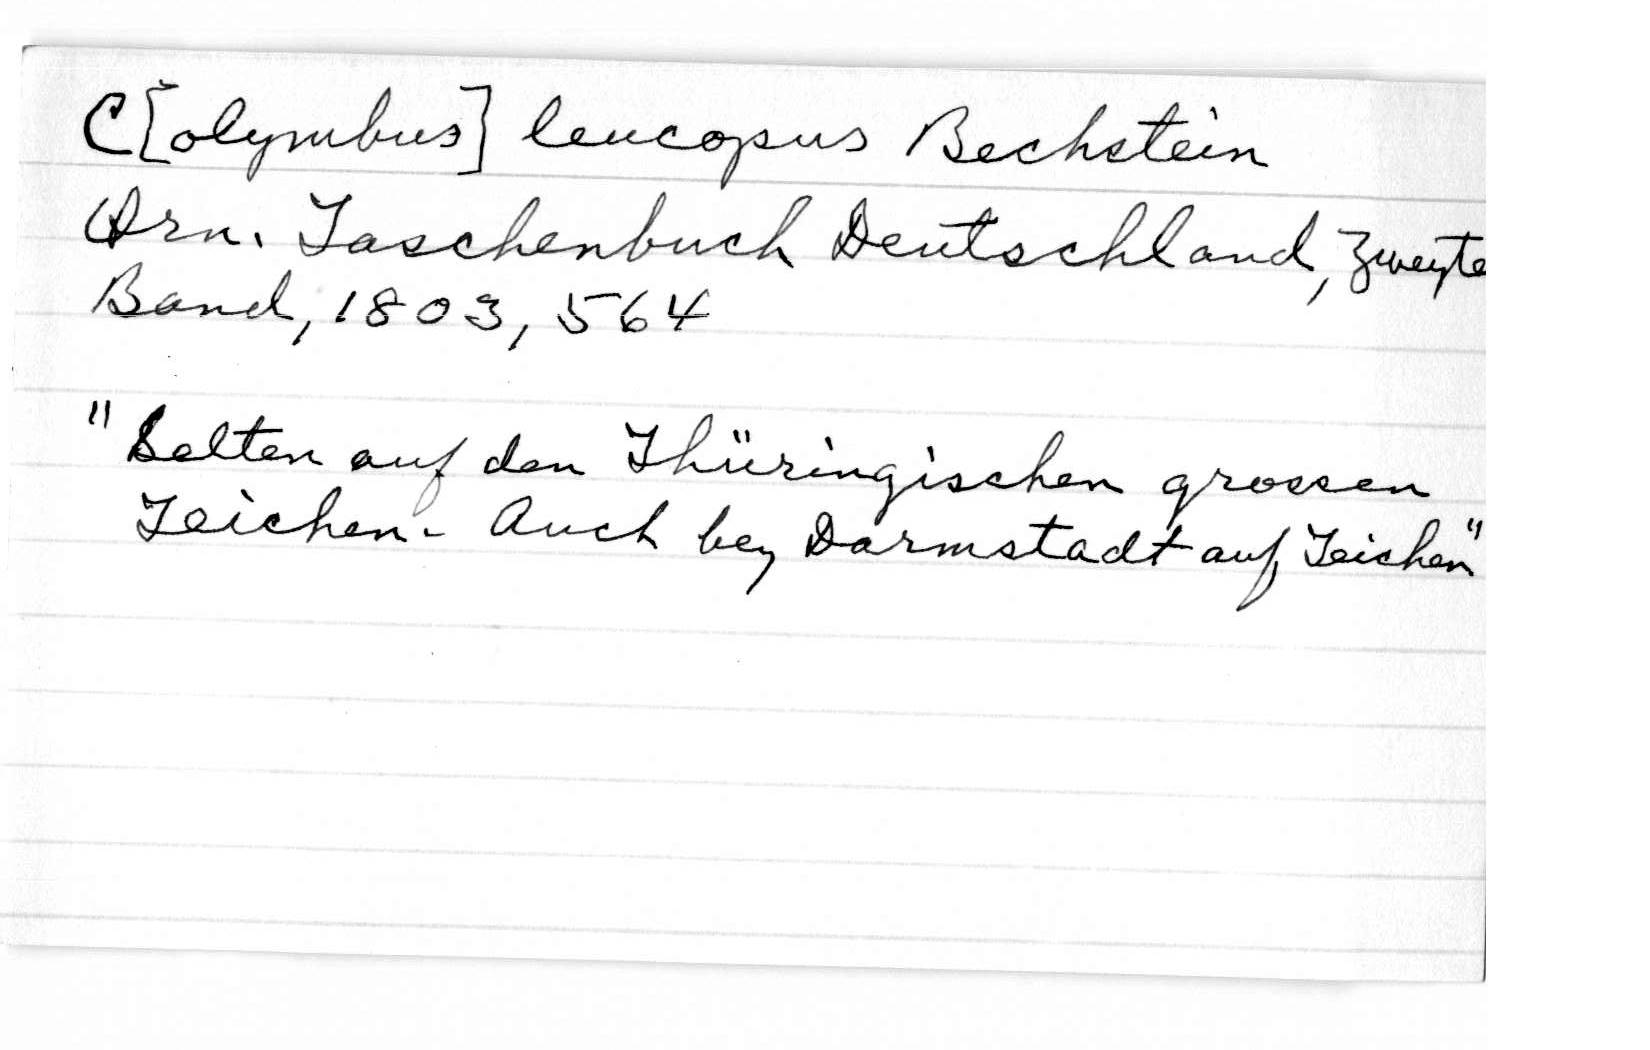 C[olymbus] leucopus Bechstein
Orn. Taschenbuch Deutschland, Zweyte
Band, 1803, 564
"Selten auf den Thüringischen grossen
Teichen - Auch bey Darmstadt auf Teichen"